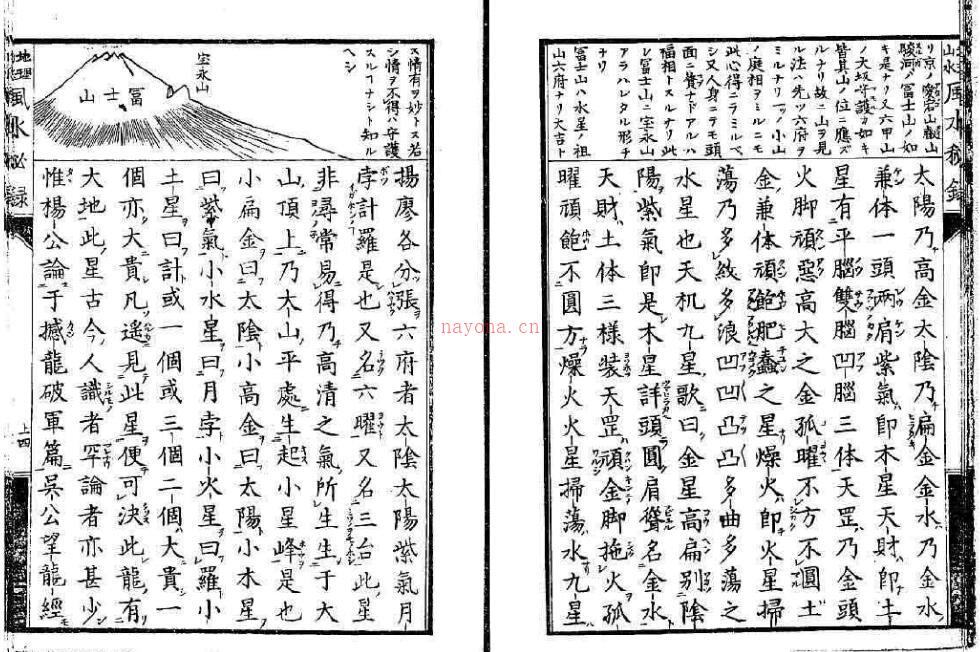 リ京ノ愛宕山叡山
駿河ノ冨士山ノ如
キ是ナリ又六甲山
ノ大坂守護ノ如キ
皆其山ノ位ニ應ズ
ルナリ故ニ山ヲ見
ル法ハ先ツ六府ヲ
ミルナリ一ノ小山
ノ庭相ヲミルニモ
此心得ニテミルベ
シ又人身ニテモ頭
面ニ贅ナドアルハ
福相トスルナリ此
レ冨士山ニ宝永山
アラハレタル形チ
ナリ
冨士山ハ水星ノ祖
山六府ナリ大吉ト
太陽乃高金太陰乃扁金金水乃金水
兼体一頭兩肩紫氣即木星天財即土
星有平腦雙腦凹腦三体天罡乃金頭
火脚頑惡高大之金孤曜不方不圓土
金兼体頑飽肥蠢之星燥火即火星掃
蕩乃多紋多浪凹凹凸凸多曲多蕩之
水星也天机九星歌曰金星高扁別陰
陽紫氣即是木星詳頭圓肩聳名金水
天財土体三樣裝天罡頑金脚拖火孤
曜頑飽不圓方燥火火星掃蕩水九星
ス情有ヲ妙トス若
シ情ヲ不得ハ守護
スルコナシト知ル
ヘシ
宝永山
冨士山
楊廖各分張六府者太陰太陽紫氣月
孛計羅是也又名六曜又名三台此星
非尋常易得乃高清之氣所生生于大
山頂上乃大山平處生起小星峰是也
小扁金曰太陰小高金曰太陽小木星
曰紫氣小水星曰月孛小火星曰羅小
土星曰計或一個或三個二個大貴一
個亦大貴凡遙見此星便可決此龍有
大地此星古今人識者罕論者亦甚少
惟楊公論于撼龍破軍篇吳公望龍經
地理風水秘録
上四
nayona.cn